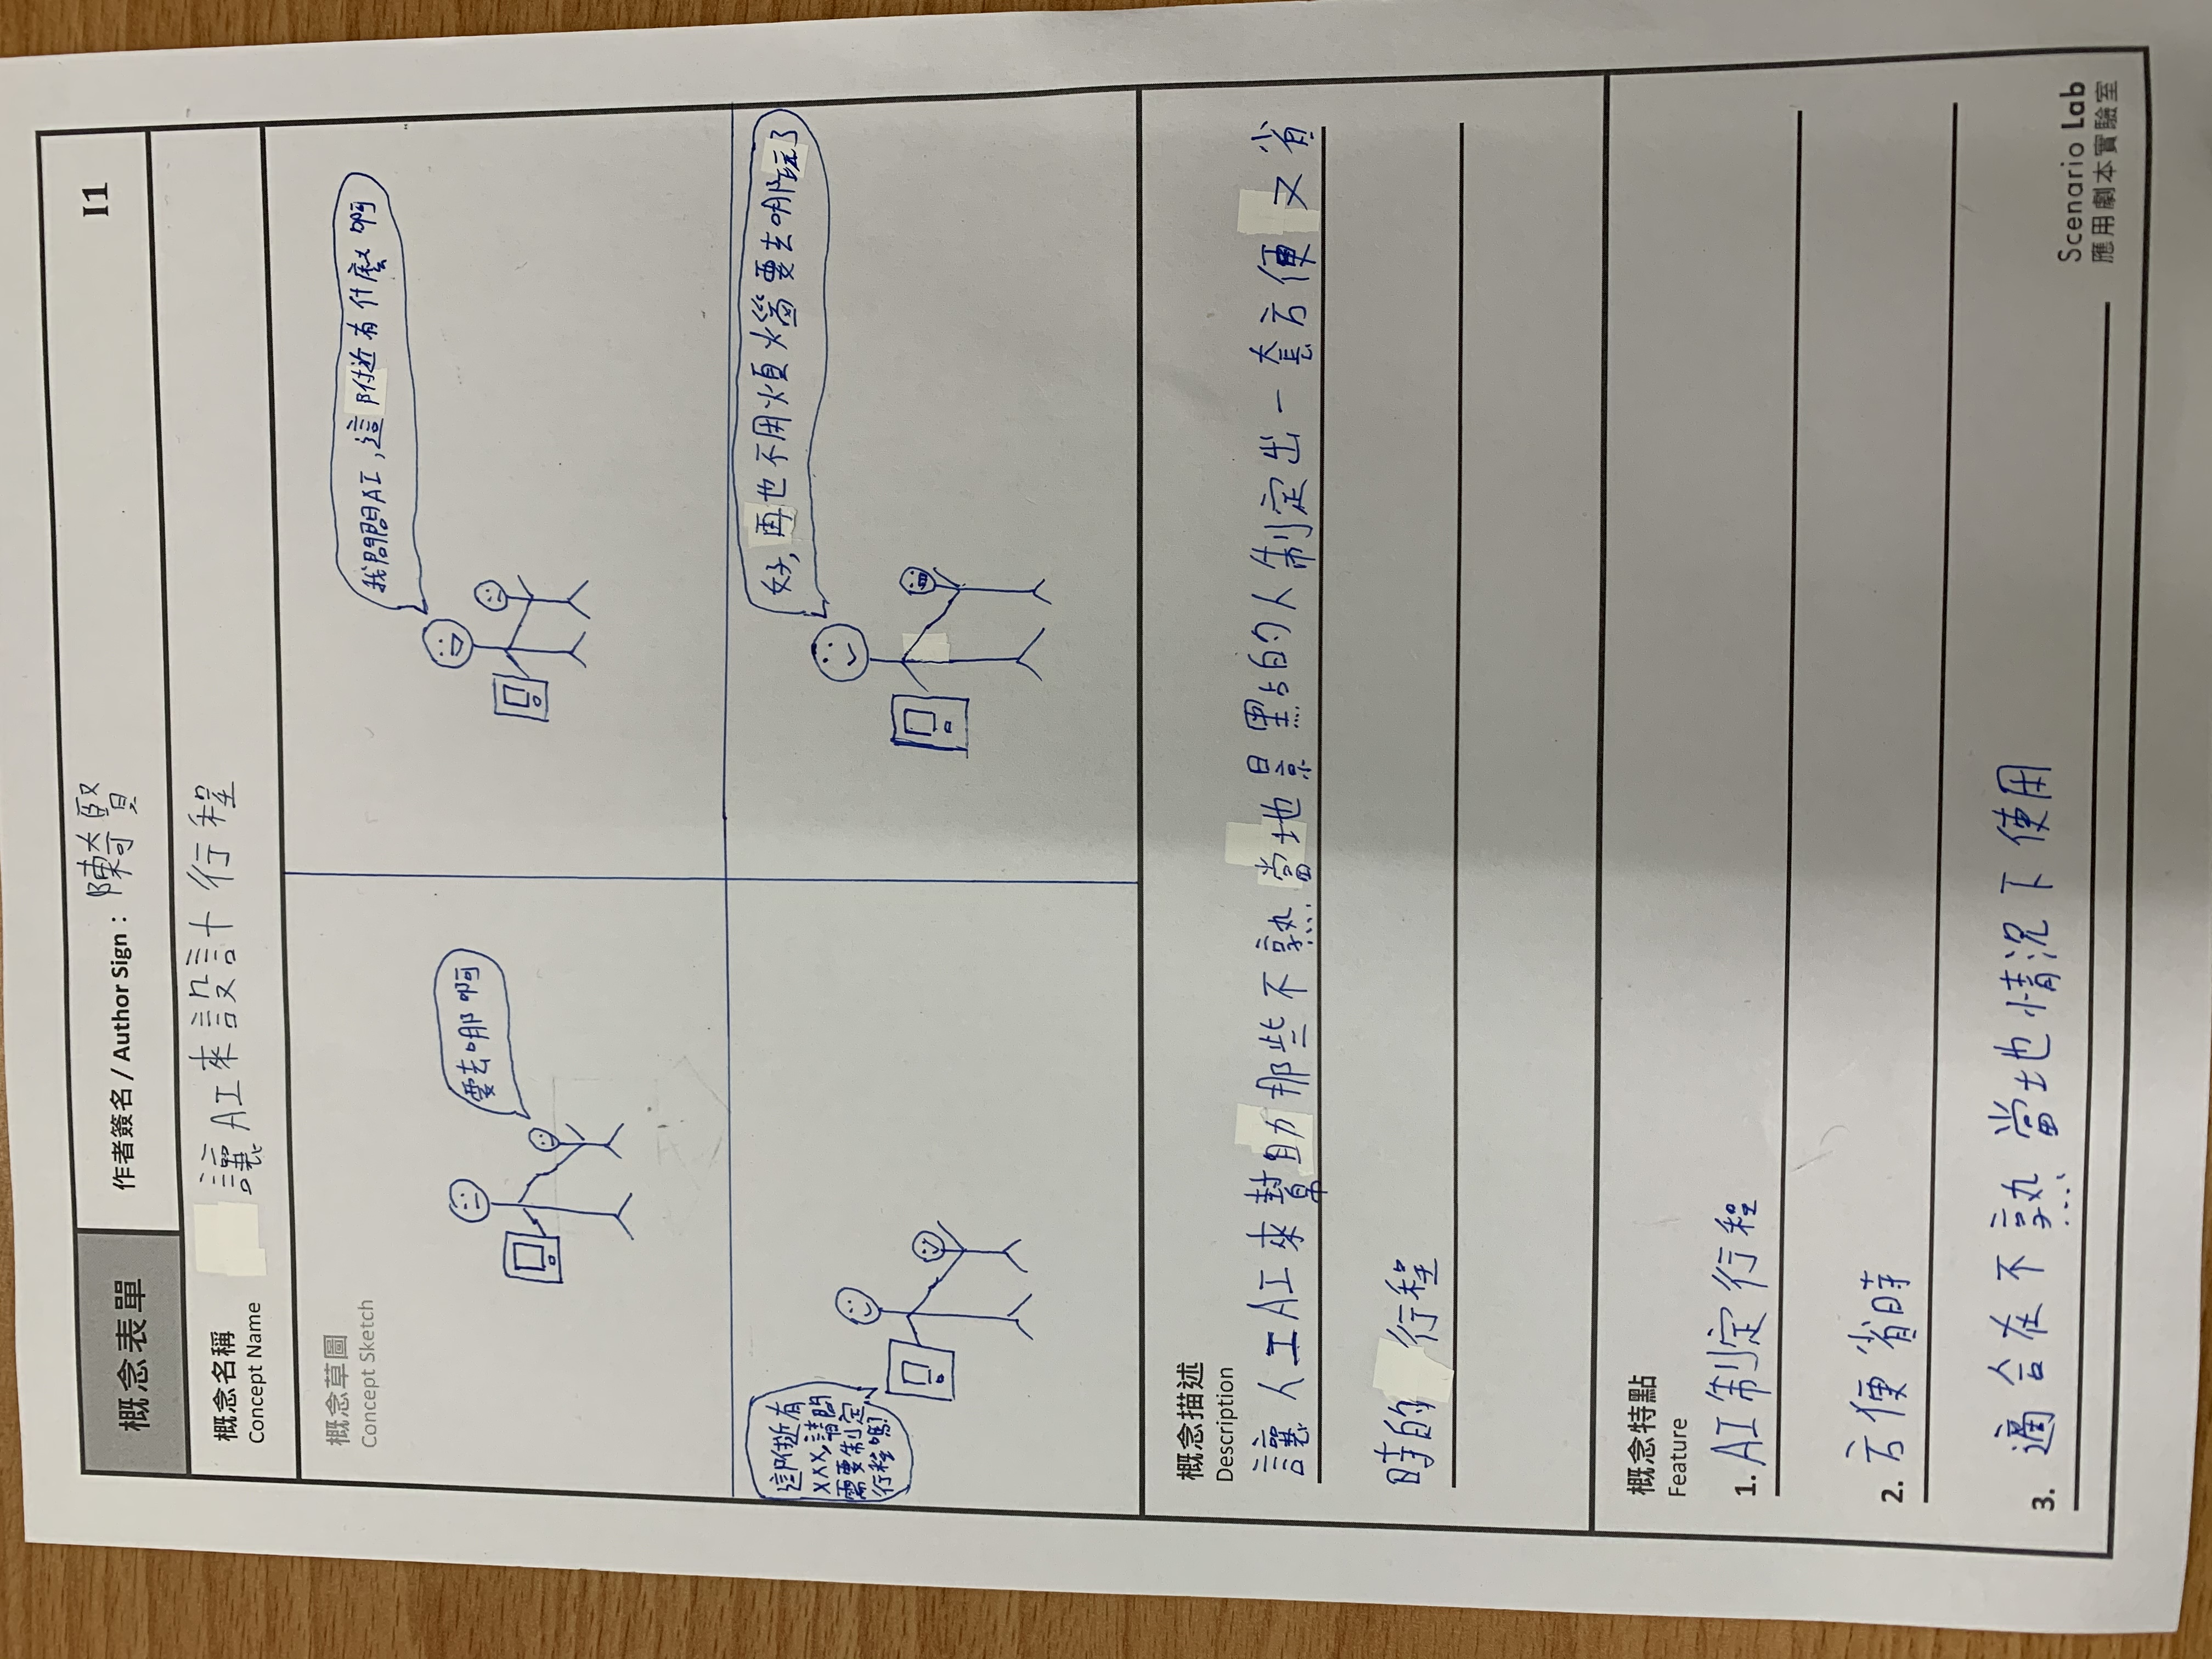 概念表單
作者簽名 / Author Sign：陳奇賢
I1
概念名稱
Concept Name
讓AI來設計行程
概念草圖
Concept Sketch
要去哪啊
我問問AI,這附近有什麼啊
這附近有
XXX,請問
需要制定
行程嗎?
好,再也不用煩惱要去哪玩了
概念描述
Description
讓人工AI來幫助那些不熟當地景點的人制定出一套方便又省
時的行程
概念特點
Feature
1. AI制定行程
2. 方便省時
3. 適合在不熟當地情況下使用
Scenario Lab
應用劇本實驗室